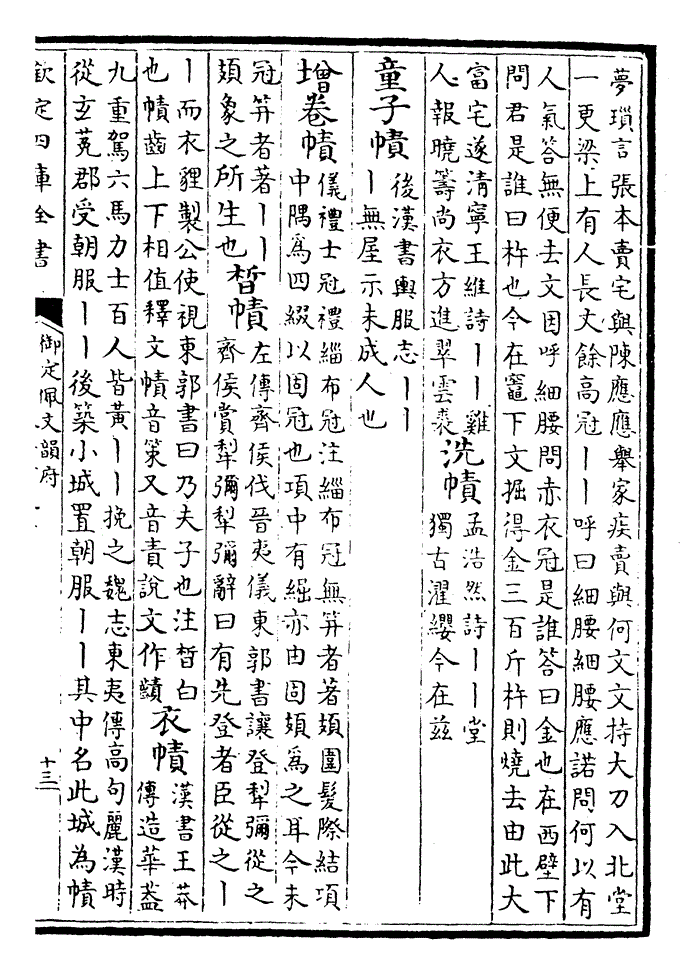 夢瑣言張本賣宅與陳應應舉家疾賣與何文文持大刀入北堂
一更梁上有人長丈餘高冠丨丨呼曰細腰細腰應諾問何以有
人氣答無便去文因呼細腰問赤衣冠是誰答曰金也在西壁下
問君是誰曰杵也今在竈下文掘得金三百斤杵則燒去由此大
富宅遂清寧王維詩丨丨雞
人報曉籌尚衣方進翠雲裘
洗幘
孟浩然詩丨丨堂
獨古濯纓今在茲
童子幘
後漢書輿服志丨丨
丨無屋示未成人也
增卷幘
儀禮士冠禮緇布冠注緇布冠無笄者著頍圍髮際結項
中隅為四綴以固冠也項中有𦀗亦由固頍為之耳今未
冠笄者著丨丨
頍象之所生也
皙幘
左傳齊侯伐晉夷儀東郭書讓登犂彌從之
齊侯賞犂彌犂彌辭曰有先登者臣從之丨
丨而衣貍製公使視東郭書曰乃夫子也注皙白
也幘齒上下相值釋文幘音策又音責說文作䶦
衣幘
漢書王莽
傳造華蓋
九重駕六馬力士百人皆黃丨丨挽之魏志東夷傳高句麗漢時
從玄菟郡受朝服丨丨後築小城置朝服丨丨其中名此城為幘
欽定四庫全書
御定佩文韻府
十三